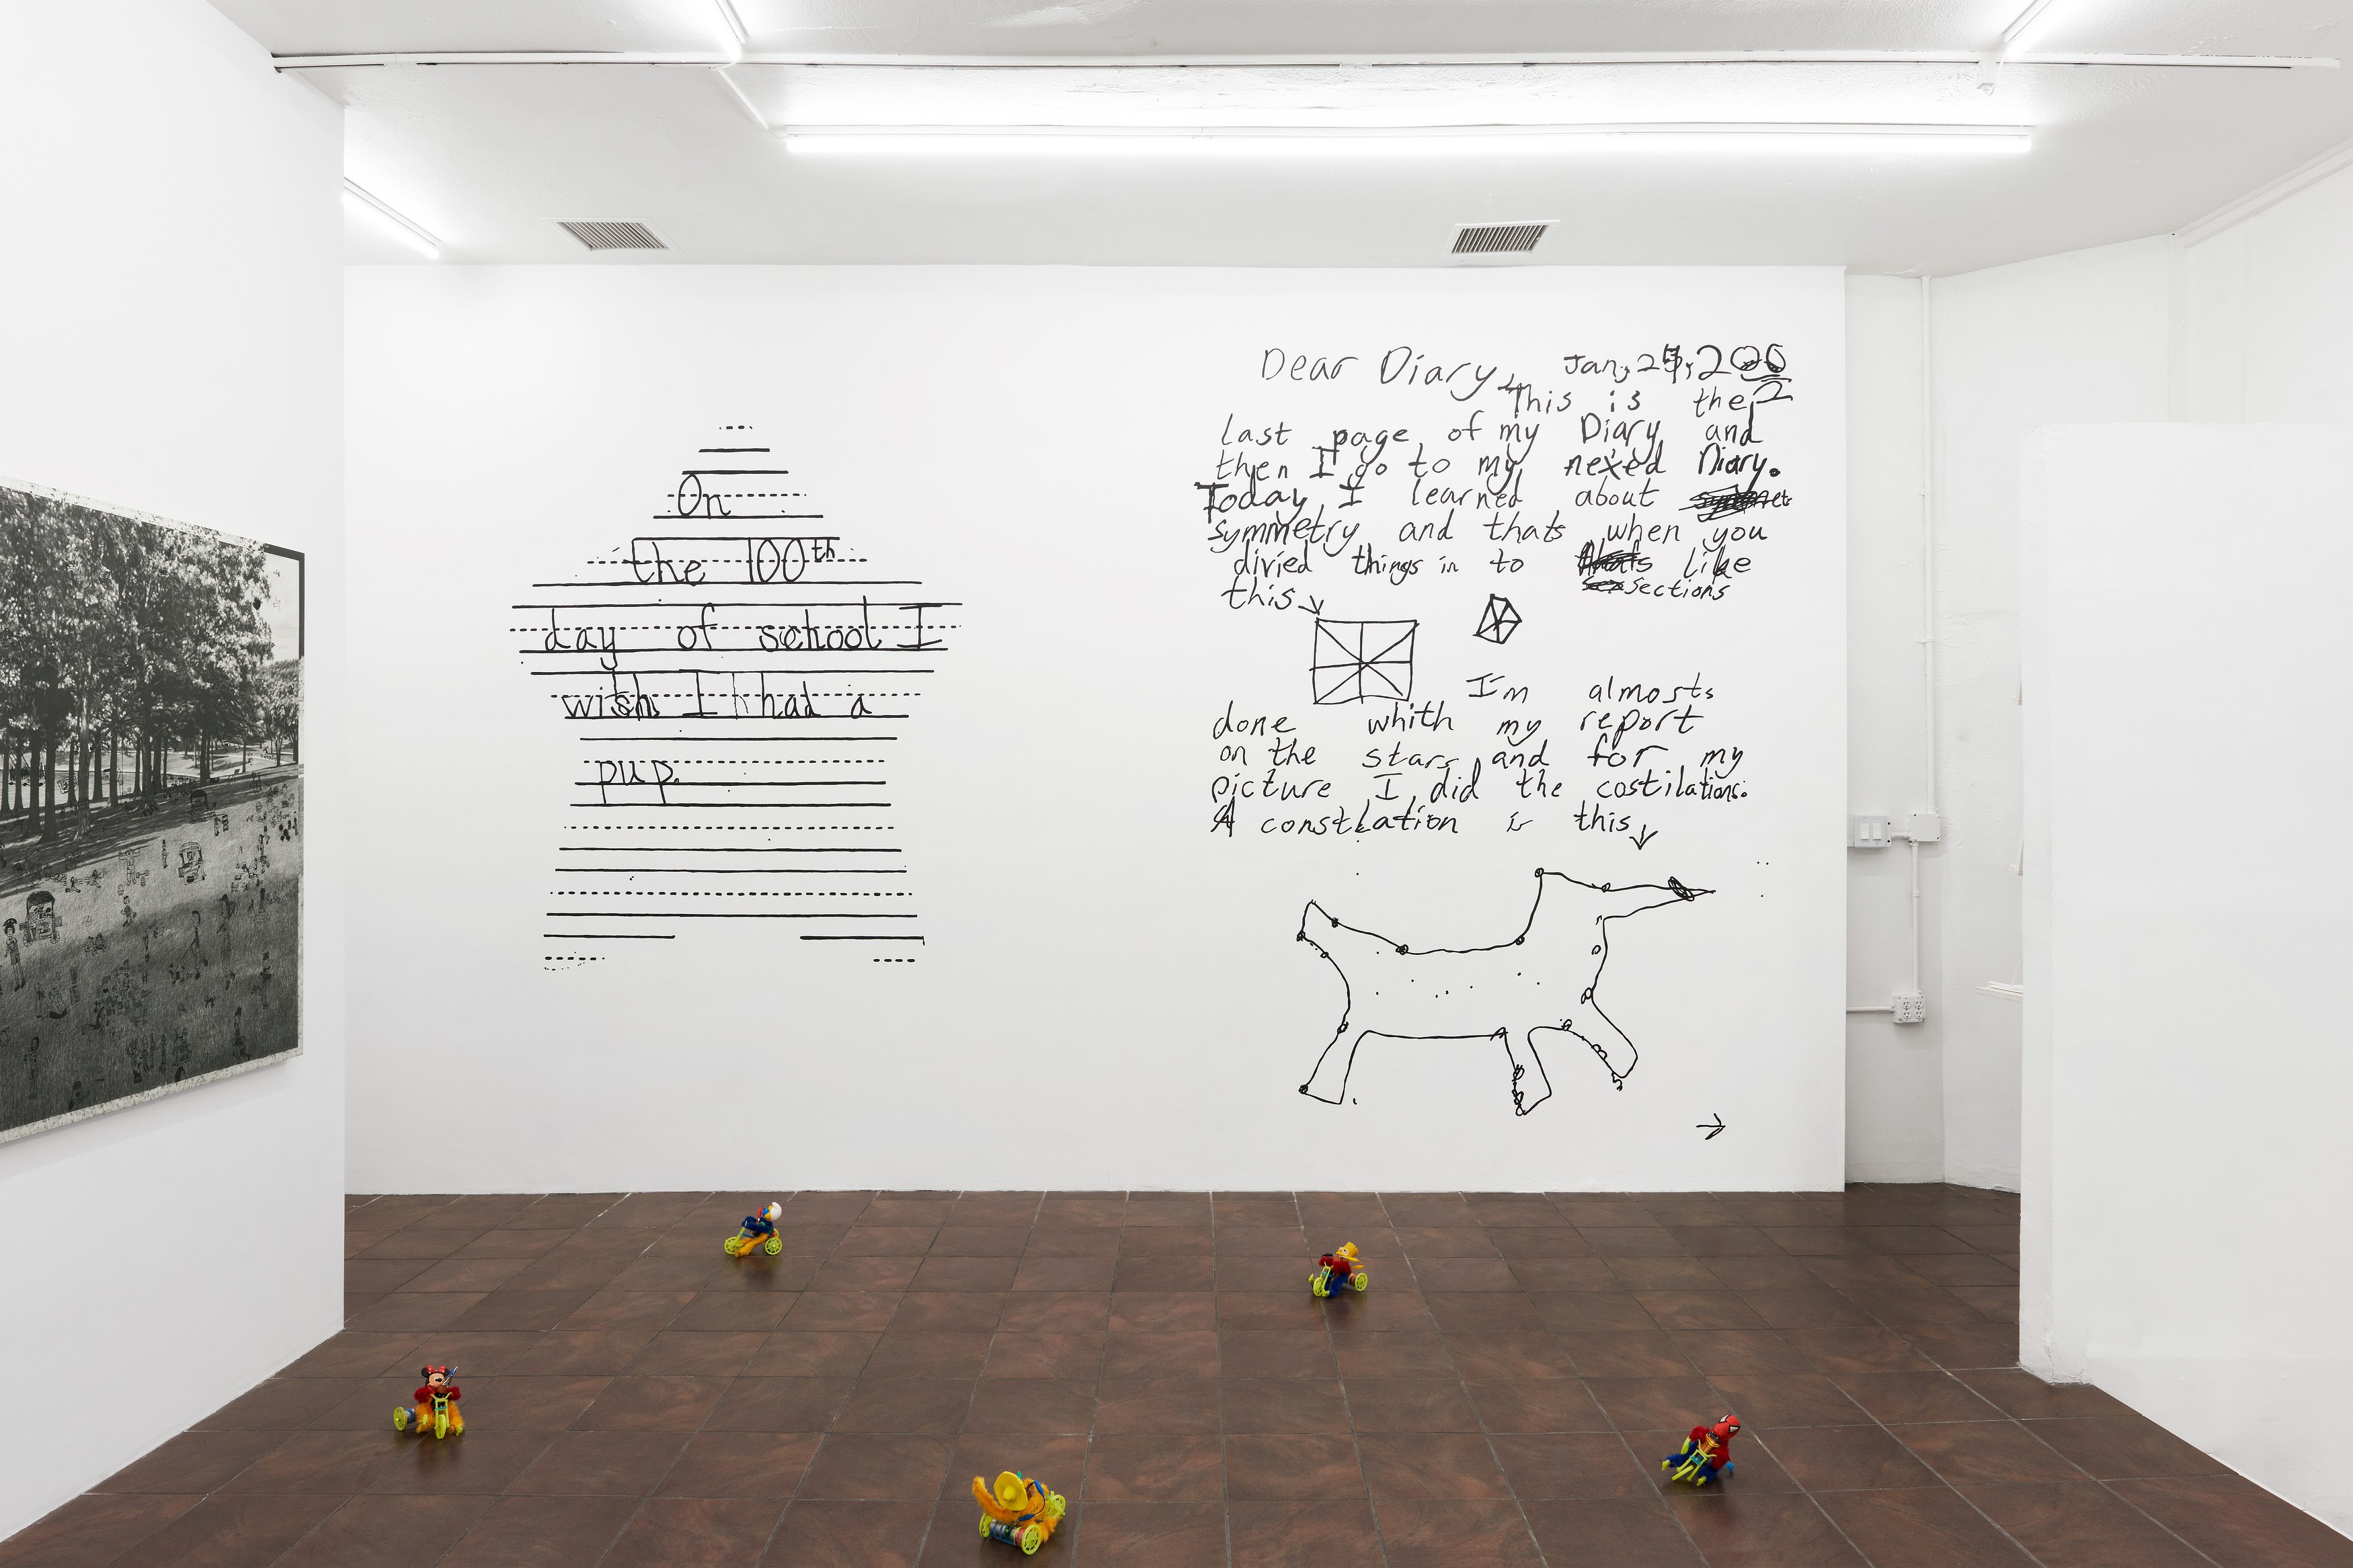 On
the 100th
day of school I
wish I had a
pup.
Dear Diary, Jan, 25, 2002
This is the
last page of my Diary and
then I go to my nexed Diary.
Today I learned about
symmetry and thats when you
divied things in to like
sections
this
I'm almosts
done whith my report
on the stars and for my
picture I did the costilations.
A constlation is this